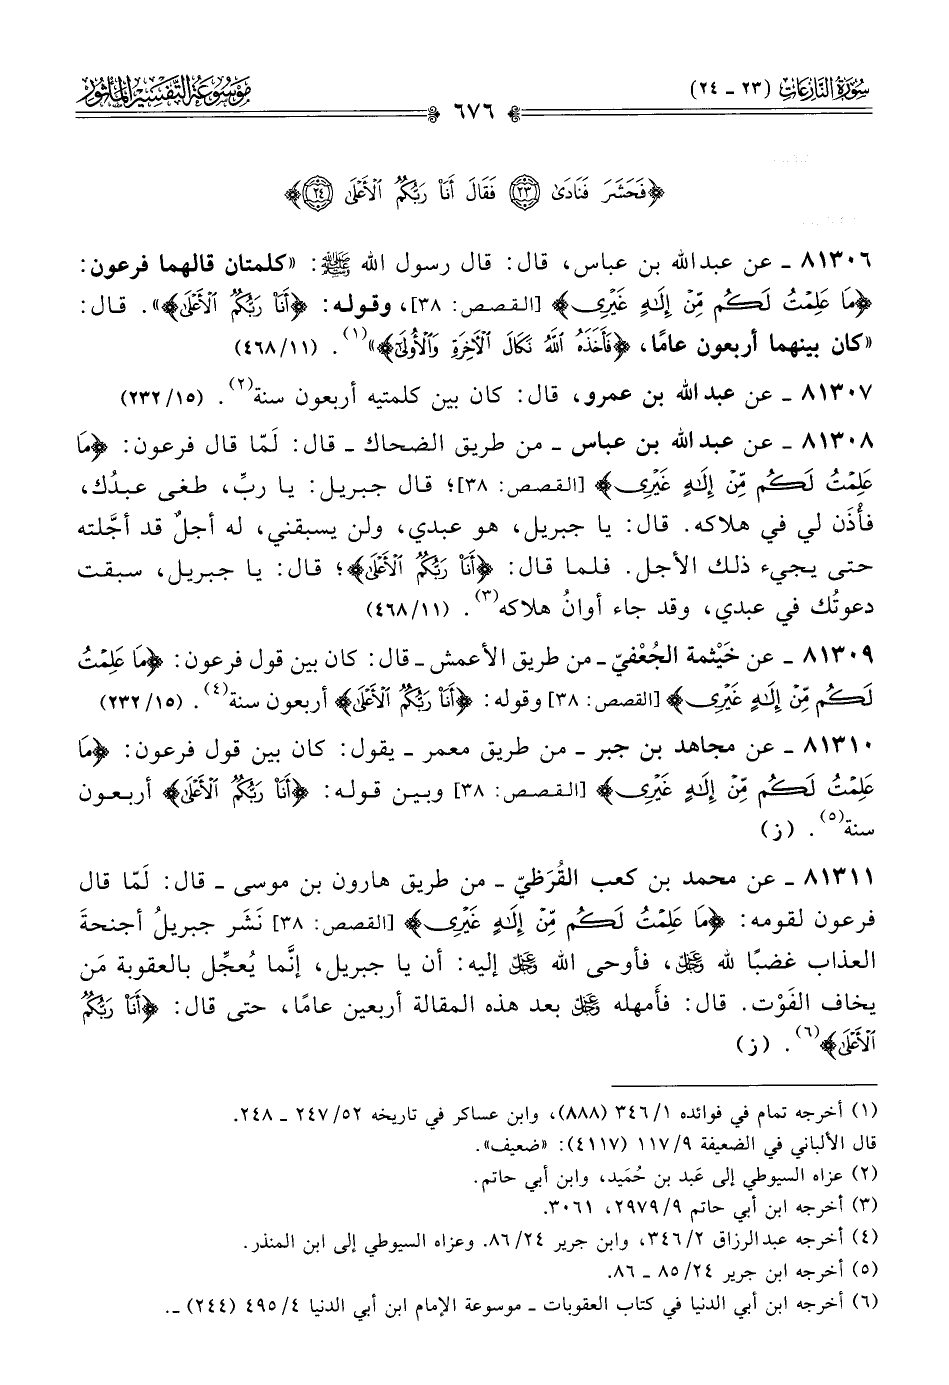 سُورَةُ النَّازِعَاتِ (٢٣ - ٢٤)
٦٧٦
مَوْسُوعَةُ التَّفْسِيرِ المَأْثُورِ
﴿فَحَشَرَ فَنَادَىٰ ۝٢٣ فَقَالَ أَنَا۠ رَبُّكُمُ ٱلْأَعْلَىٰ ۝٢٤﴾
٨١٣٠٦ ـ عن عبدالله بن عباس، قال: قال رسول الله ﷺ: «كلمتان قالهما فرعون:
﴿مَا عَلِمْتُ لَكُم مِّنْ إِلَٰهٍ غَيْرِى﴾ [القصص: ٣٨]، وقوله: ﴿أَنَا۠ رَبُّكُمُ ٱلْأَعْلَىٰ﴾». قال:
«كان بينهما أربعون عامًا، ﴿فَأَخَذَهُ ٱللَّهُ نَكَالَ ٱلْآخِرَةِ وَٱلْأُولَىٰ﴾»(١). (٤٦٨/١١)
٨١٣٠٧ ـ عن عبدالله بن عمرو، قال: كان بين كلمتيه أربعون سنة(٢). (٢٣٢/١٥)
٨١٣٠٨ ـ عن عبدالله بن عباس ـ من طريق الضحاك ـ قال: لَمّا قال فرعون: ﴿مَا
عَلِمْتُ لَكُم مِّنْ إِلَٰهٍ غَيْرِى﴾ [القصص: ٣٨]؛ قال جبريل: يا ربِّ، طغى عبدُك،
فأْذَن لي في هلاكه. قال: يا جبريل، هو عبدي، ولن يسبقني، له أجلٌ قد أجَّلته
حتى يجيء ذلك الأجل. فلما قال: ﴿أَنَا۠ رَبُّكُمُ ٱلْأَعْلَىٰ﴾؛ قال: يا جبريل، سبقت
دعوتُك في عبدي، وقد جاء أوانُ هلاكه(٣). (٤٦٨/١١)
٨١٣٠٩ ـ عن خَيْثمة الجُعْفيّ ـ من طريق الأعمش ـ قال: كان بين قول فرعون: ﴿مَا عَلِمْتُ
لَكُم مِّنْ إِلَٰهٍ غَيْرِى﴾ [القصص: ٣٨] وقوله: ﴿أَنَا۠ رَبُّكُمُ ٱلْأَعْلَىٰ﴾ أربعون سنة(٤). (٢٣٢/١٥)
٨١٣١٠ ـ عن مجاهد بن جبر ـ من طريق معمر ـ يقول: كان بين قول فرعون: ﴿مَا
عَلِمْتُ لَكُم مِّنْ إِلَٰهٍ غَيْرِى﴾ [القصص: ٣٨] وبين قوله: ﴿أَنَا۠ رَبُّكُمُ ٱلْأَعْلَىٰ﴾ أربعون
سنة(٥). (ز)
٨١٣١١ ـ عن محمد بن كعب القُرَظيّ ـ من طريق هارون بن موسى ـ قال: لَمّا قال
فرعون لقومه: ﴿مَا عَلِمْتُ لَكُم مِّنْ إِلَٰهٍ غَيْرِى﴾ [القصص: ٣٨] نَشَر جبريلُ أجنحةَ
العذاب غضبًا لله ﷿، فأوحى الله ﷿ إليه: أن يا جبريل، إنَّما يُعجِّل بالعقوبة مَن
يخاف الفَوْت. قال: فأَمهله ﷿ بعد هذه المقالة أربعين عامًا، حتى قال: ﴿أَنَا۠ رَبُّكُمُ
ٱلْأَعْلَىٰ﴾(٦). (ز)
(١) أخرجه تمام في فوائده ٣٤٦/١ (٨٨٨)، وابن عساكر في تاريخه ٢٤٧/٥٢ ـ ٢٤٨.
قال الألباني في الضعيفة ١١٧/٩ (٤١١٧): «ضعيف».
(٢) عزاه السيوطي إلى عَبد بن حُمَيد، وابن أبي حاتم.
(٣) أخرجه ابن أبي حاتم ٢٩٧٩/٩، ٣٠٦١.
(٤) أخرجه عبدالرزاق ٣٤٦/٢، وابن جرير ٨٦/٢٤. وعزاه السيوطي إلى ابن المنذر.
(٥) أخرجه ابن جرير ٨٥/٢٤ ـ ٨٦.
(٦) أخرجه ابن أبي الدنيا في كتاب العقوبات ـ موسوعة الإمام ابن أبي الدنيا ٤٩٥/٤ (٢٤٤) ـ.